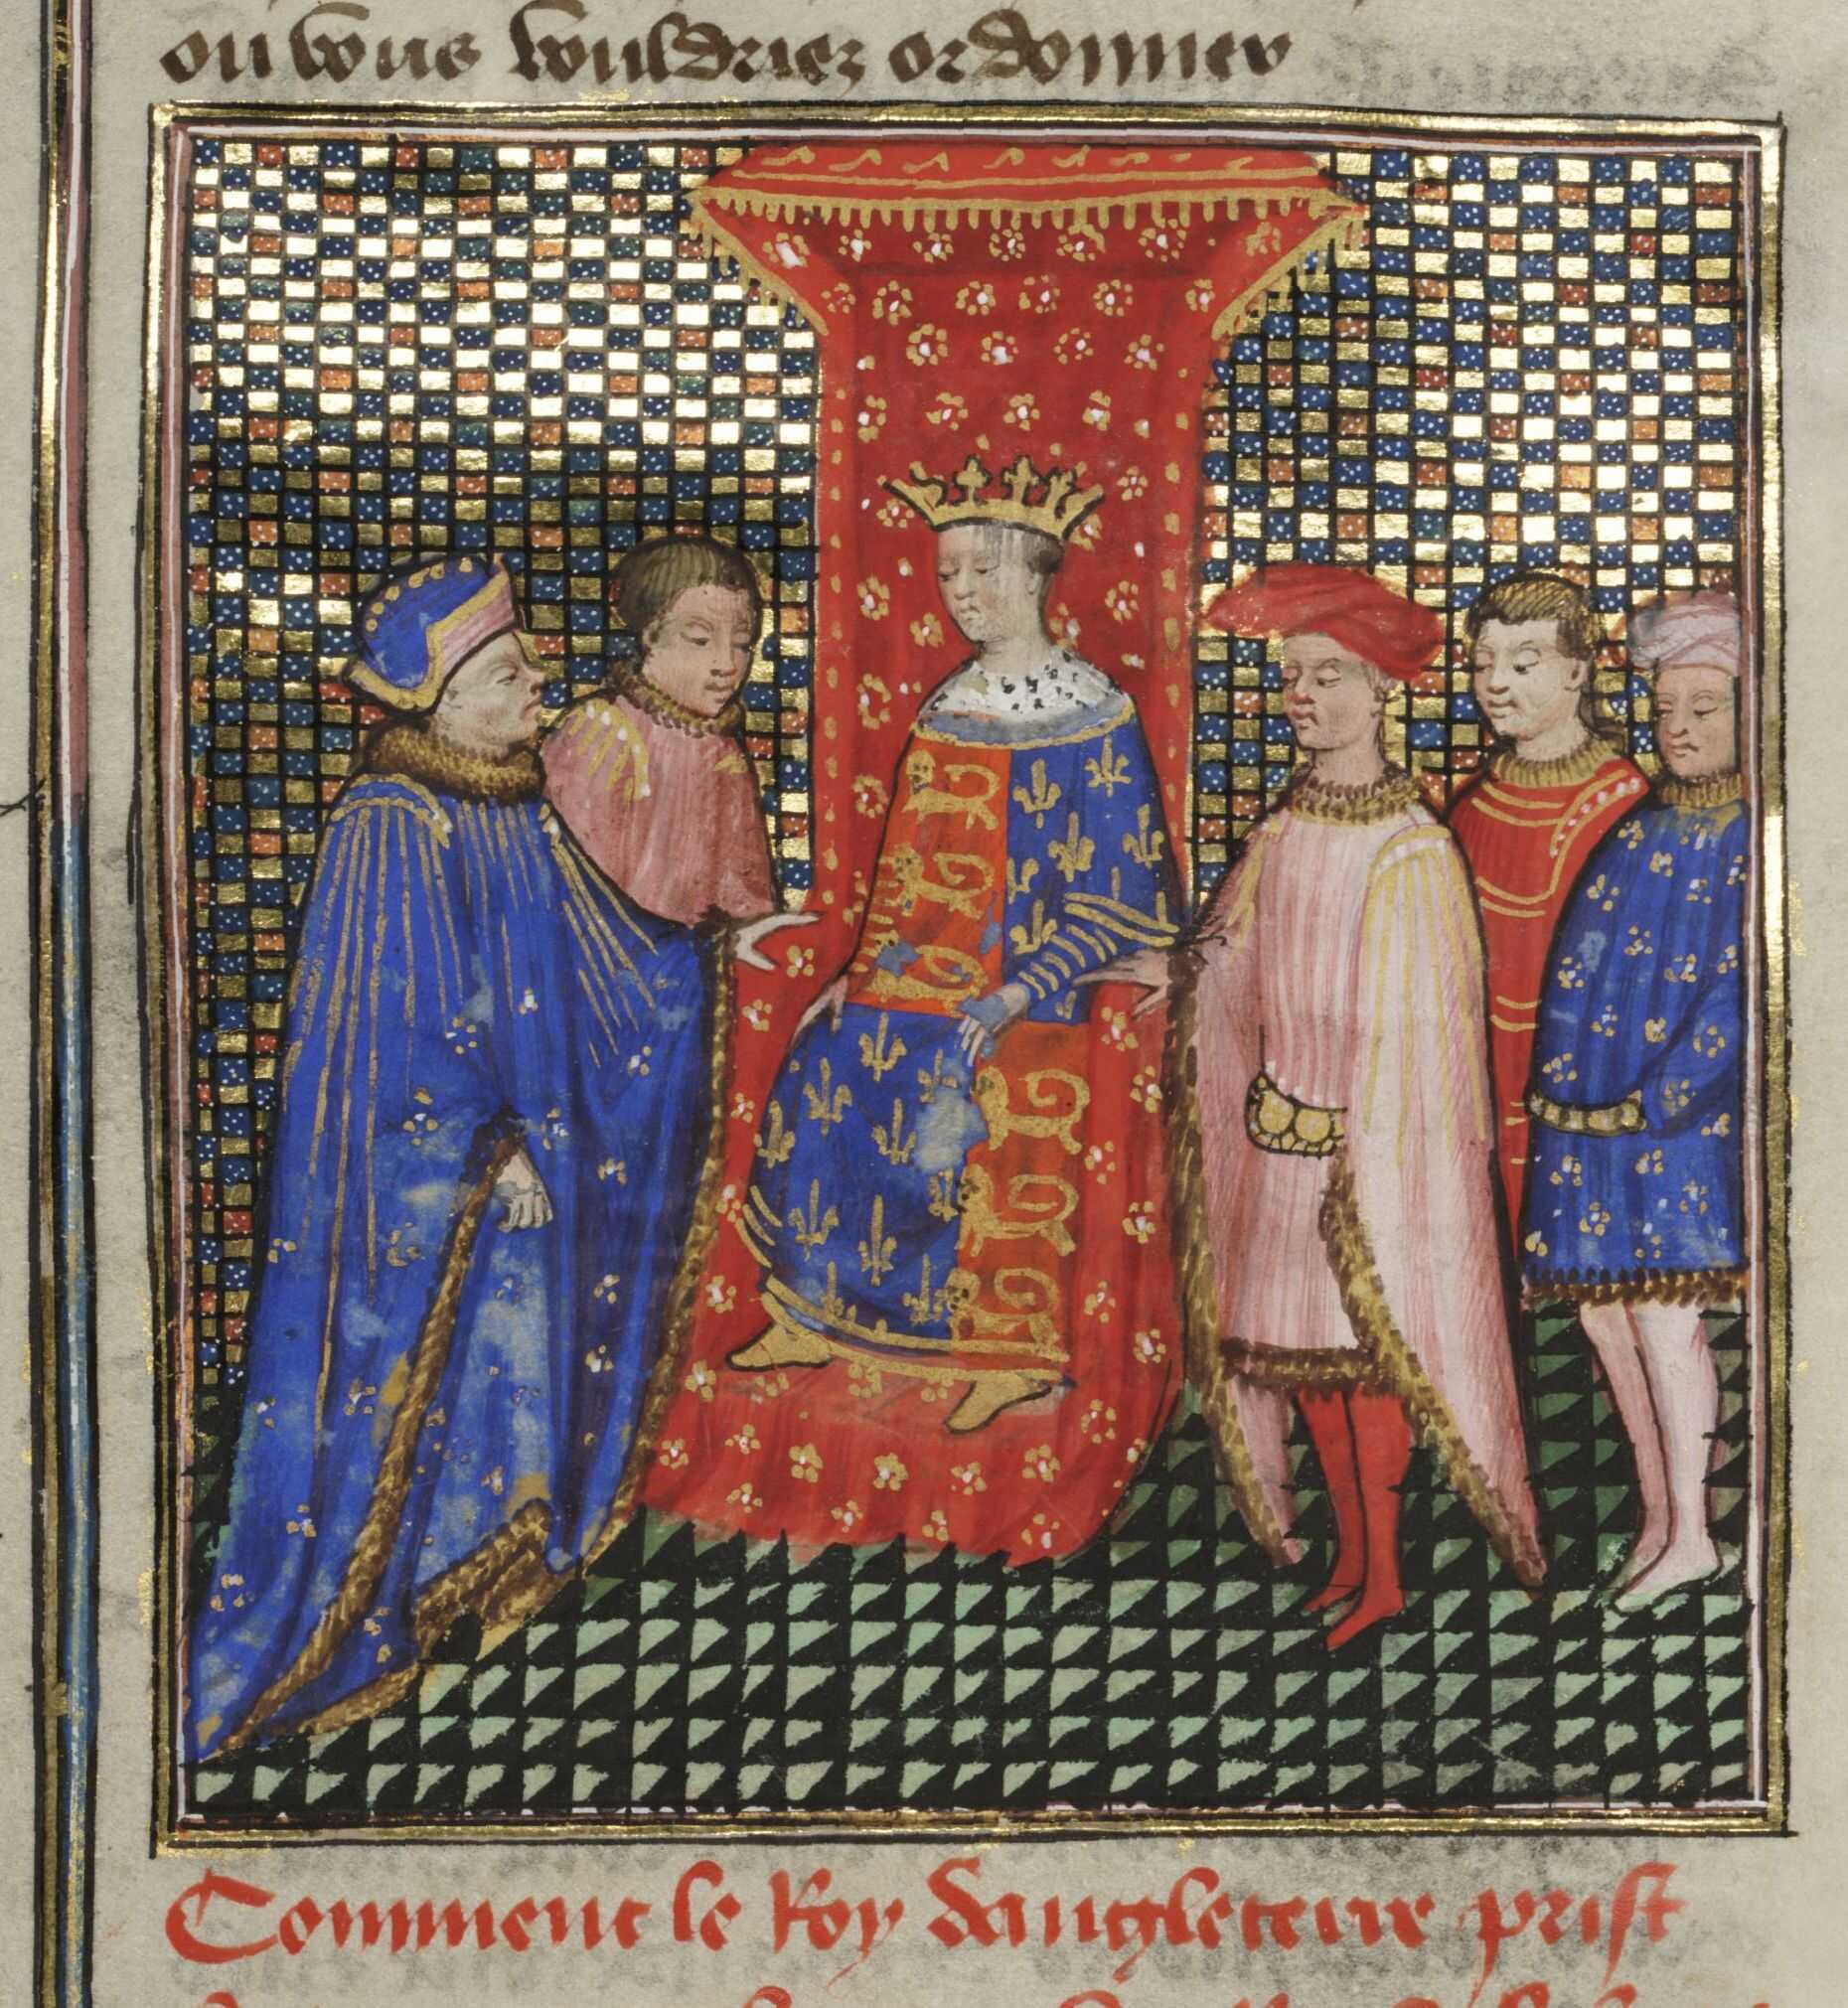 ou vous vouldriez ordonner
Comment le Roy dangleterre prist